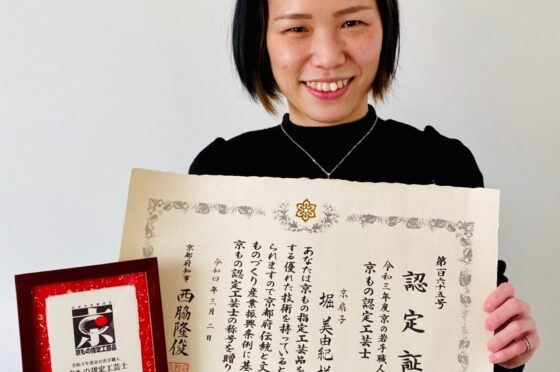 第百六十五号
認定証
令和三年度京の若手職人
京もの認定工芸士
京扇子
堀 美由紀 様
あなたは京もの指定工芸品を
する優れた技術を持っていると
られますので京都府伝統と文
ものづくり産業振興条例に基
京もの認定工芸士の称号を贈り
令和四年三月二日
京都府知事 西脇隆俊
京
京もの指定工芸品